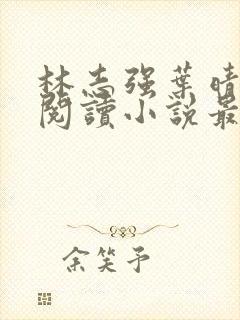 林志强葉晴
閱讀小說最
余笑予